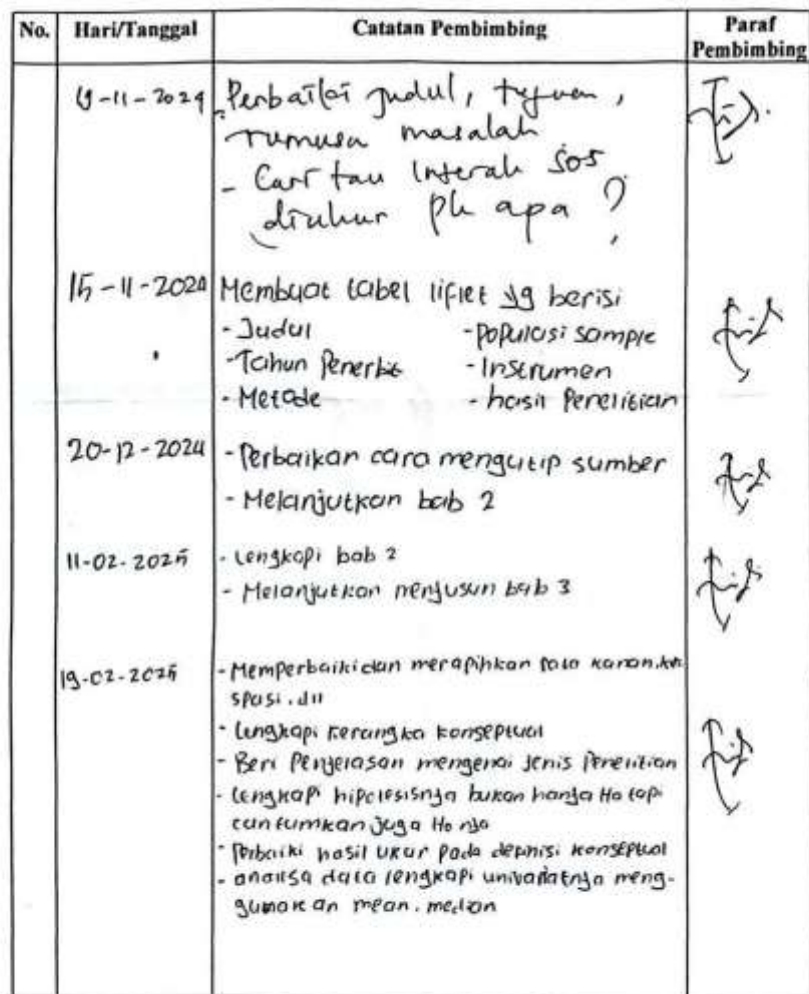 No. Hari/Tanggal Catatan Pembimbing Paraf Pembimbing
19-11-2024 Perbaiki judul, tujuan,
rumusa masalah
- Cari tau Interak sos
diukur pk apa ?
15-11-2024 Membuat tabel lifiet yg berisi
- Judul - Populasi sample
- Tahun Penerbit - Instrumen
- Metode - hasil Penelitian
20-12-2024 - Perbaikan cara mengutip sumber
- Melanjutkan bab 2
11-02-2025 - Lengkapi bab 2
- Melanjutkan menyusun bab 3
19-02-2025 - Memperbaiki dan merapihkan kanan.
spasi. dll
- Lengkapi Kerangka Konseptual
- Beri Penjelasan mengenai Jenis Penelitian
- Lengkapi hipotesisnya bukan hanya Ha tapi
cantumkan juga Ho nya
- Perbaiki hasil Ukur pada definisi Konseptual
- analisa data lengkapi univariatnya meng-
gunakan mean. median